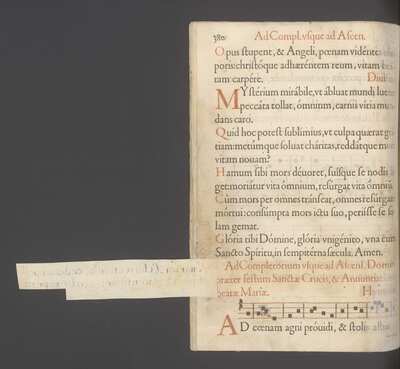 380 Ad Compl. vsque ad Ascen.
Opus stupent, & Angeli, pœnam vidéntes
poris: christóque adhæréntem reum, vitam
tam carpére.
MYstérium mirábile, vt ábluat mundi lue
peccáta tollat, ómnium, carnis vitia mun
dans caro.
Quid hoc potest sublímius, vt culpa quærat
tiam: metúmque soluat cháritas, reddátque mors
vitam nouam?
Hamum sibi mors déuoret, suísque se nodis
get: moriátur vita ómnium, resúrgat vita ómniũ.
Cùm mors per omnes tránseat, omnes resúrgant
mórtui: consúmpta mors ictu suo, periísse se so
lam gemat.
Glória tibi Dómine, glória vnigénito, vna cum
Sancto Spíritu, in sempitérna sæcula. Amen.
Ad Completorium vsque ad Ascens. Domini
præter festum Sanctæ Crucis, & Annuntiat.
beatæ Mariæ.
AD cœnam agni próuidi, & stolis albis